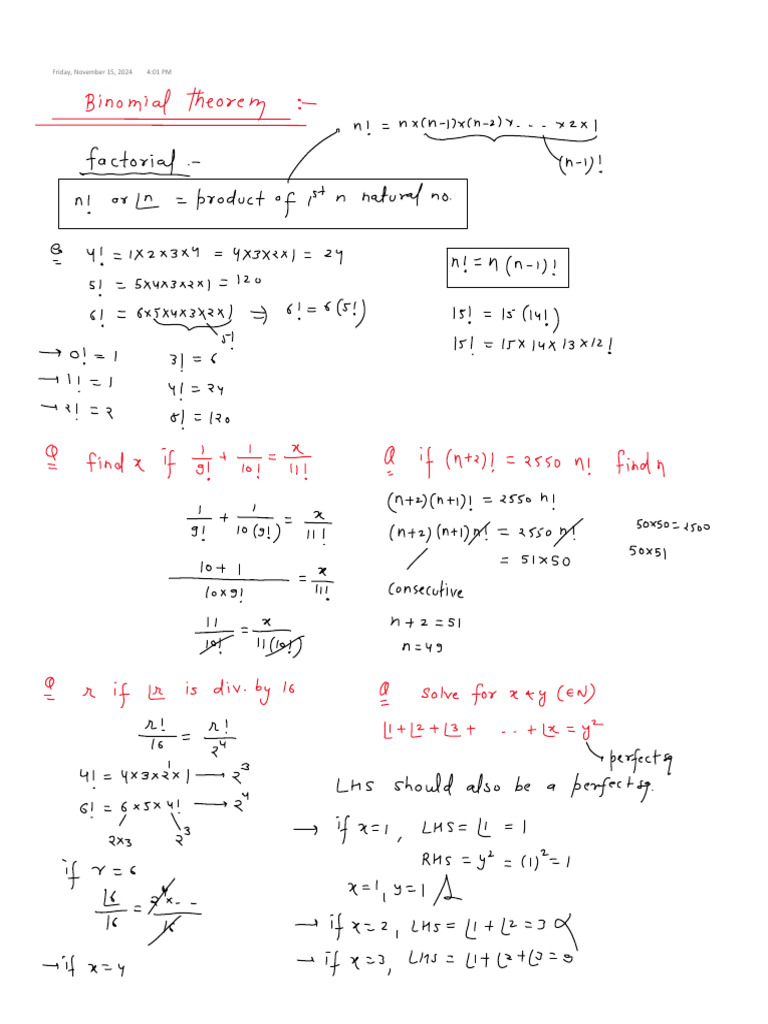 Friday, November 15, 2024 4:01 PM
Binomial theorem :-
n! = n×(n-1)×(n-2)×. . . . ×2×1
(n-1)!
factorial :-
n! or ⌊n = product of 1st n natural no.
Q 4! = 1×2×3×4 = 4×3×2×1 = 24
5! = 5×4×3×2×1 = 120
6! = 6×5×4×3×2×1 ⇒ 6! = 6(5!)
5!
n! = n(n-1)!
15! = 15(14!)
15! = 15×14×13×12!
→ 0! = 1
→ 1! = 1
→ 2! = 2
3! = 6
4! = 24
5! = 120
Q find x if 1/9! + 1/10! = x/11!
1/9! + 1/10(9!) = x/11!
10+1/10×9! = x/11!
11/10! = x/11(10!)
Q if (n+2)! = 2550 n! find n
(n+2)(n+1)! = 2550 n!
(n+2)(n+1)n! = 2550 n!
= 51×50
50×50=2500
50×51
Consecutive
n+2 = 51
n = 49
Q r if ⌊r is div. by 16
r!/16 = r!/2^4
4! = 4×3×2×1 → 2^3
6! = 6×5×4! → 2^4
2×3 2^3
if r = 6
⌊6/16 = 2^4×. ./16
→ if x = 4
Q solve for x & y (∈N)
⌊1+⌊2+⌊3+ . . . +⌊x = y²
perfect sq
LHS should also be a perfect sq.
→ if x=1, LHS = ⌊1 = 1
RHS = y² = (1)² = 1
x=1, y=1
→ if x=2, LHS = ⌊1+⌊2 = 3
→ if x=3, LHS = ⌊1+⌊2+⌊3 = 9